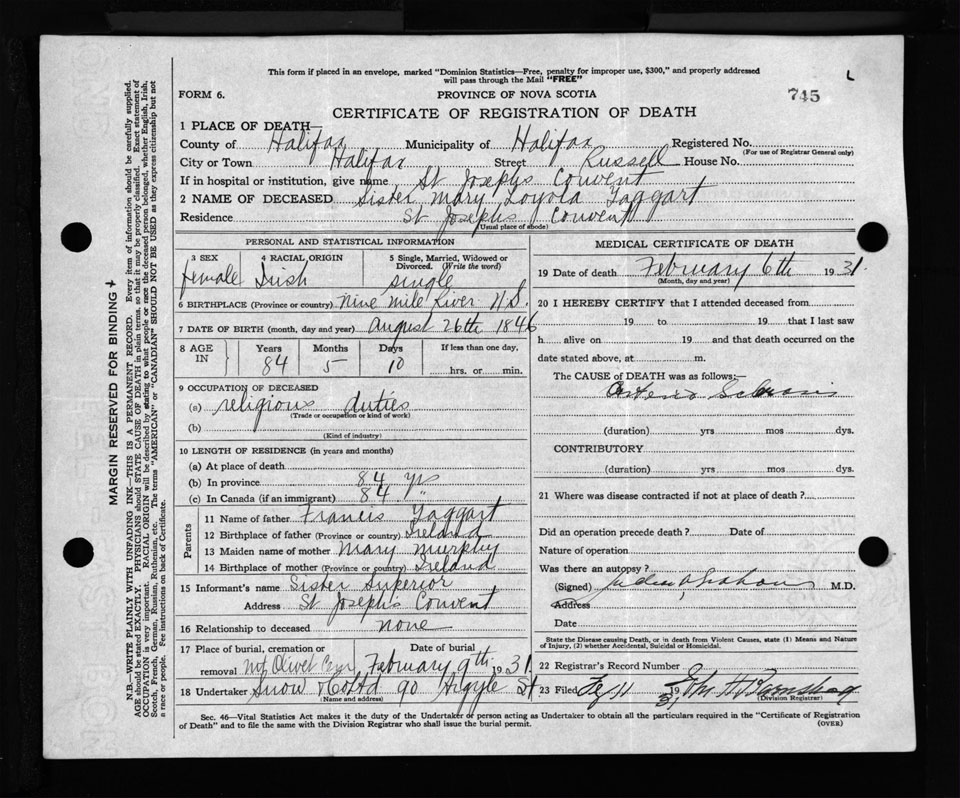 This form if placed in an envelope, marked "Dominion Statistics—Free, penalty for improper use, $300," and properly addressed
will pass through the Mail "FREE"
L
FORM 6.
PROVINCE OF NOVA SCOTIA
745
CERTIFICATE OF REGISTRATION OF DEATH
1 PLACE OF DEATH—
County of Halifax Municipality of Halifax Registered No.
(For use of Registrar General only)
City or Town Halifax Street Russell House No.
If in hospital or institution, give name St Josephs Convent
2 NAME OF DECEASED Sister Mary Loyola Taggart
Residence St Josephs Convent
(Usual place of abode)
PERSONAL AND STATISTICAL INFORMATION
3 SEX 4 RACIAL ORIGIN 5 Single, Married, Widowed or
Divorced. (Write the word)
female Irish single
6 BIRTHPLACE (Province or country) Nine Mile River N.S.
7 DATE OF BIRTH (month, day and year) August 26th 1846
8 AGE IN Years Months Days If less than one day,
84 5 10 hrs. or min.
9 OCCUPATION OF DECEASED
(a) religious duties
(Trade or occupation or kind of work)
(b)
(Kind of industry)
10 LENGTH OF RESIDENCE (in years and months)
(a) At place of death
(b) In province 84 yrs
(c) In Canada (if an immigrant) 84 "
Parents
11 Name of father Francis Taggart
12 Birthplace of father (Province or country) Ireland
13 Maiden name of mother Mary Murphy
14 Birthplace of mother (Province or country) Ireland
15 Informant's name Sister Superior
Address St Josephs Convent
16 Relationship to deceased none
17 Place of burial, cremation or removal Mt Olivet Date of burial February 9th 1931
18 Undertaker Snow & Co Ltd 90 Argyle St
(Name and address)
MEDICAL CERTIFICATE OF DEATH
19 Date of death February 6th 1931.
(Month, day and year)
20 I HEREBY CERTIFY that I attended deceased from
19 to 19 that I last saw
h alive on 19 and that death occurred on the
date stated above, at m.
The CAUSE OF DEATH was as follows:—
Arterio
(duration) yrs mos dys.
CONTRIBUTORY
(duration) yrs mos dys.
21 Where was disease contracted if not at place of death?
Did an operation precede death? Date of
Nature of operation
Was there an autopsy?
(Signed) M.D.
Address
Date
State the Disease causing Death, or in death from Violent Causes, state (1) Means and Nature
of Injury, (2) whether Accidental, Suicidal or Homicidal.
22 Registrar's Record Number
23 Filed 11 1931
(Division Registrar)
Sec. 46—Vital Statistics Act makes it the duty of the Undertaker or person acting as Undertaker to obtain all the particulars required in the "Certificate of Registration
of Death" and to file the same with the Division Registrar who shall issue the burial permit.
(OVER)
MARGIN RESERVED FOR BINDING
N.B.—WRITE PLAINLY WITH UNFADING INK—THIS IS A PERMANENT RECORD. Every item of information should be carefully supplied.
AGE should be stated EXACTLY. PHYSICIANS should STATE CAUSE OF DEATH in plain terms, so that it may be properly classified. Exact statement of
OCCUPATION is very important. RACIAL ORIGIN will be described by stating to what people or race the deceased person belonged, whether English, Irish,
Scotch, French, German, Russian, Ruthenian, etc. The terms "AMERICAN" or "CANADIAN" SHOULD NOT BE USED as they express citizenship but not
a race or people. Fee instructions on back of Certificate.